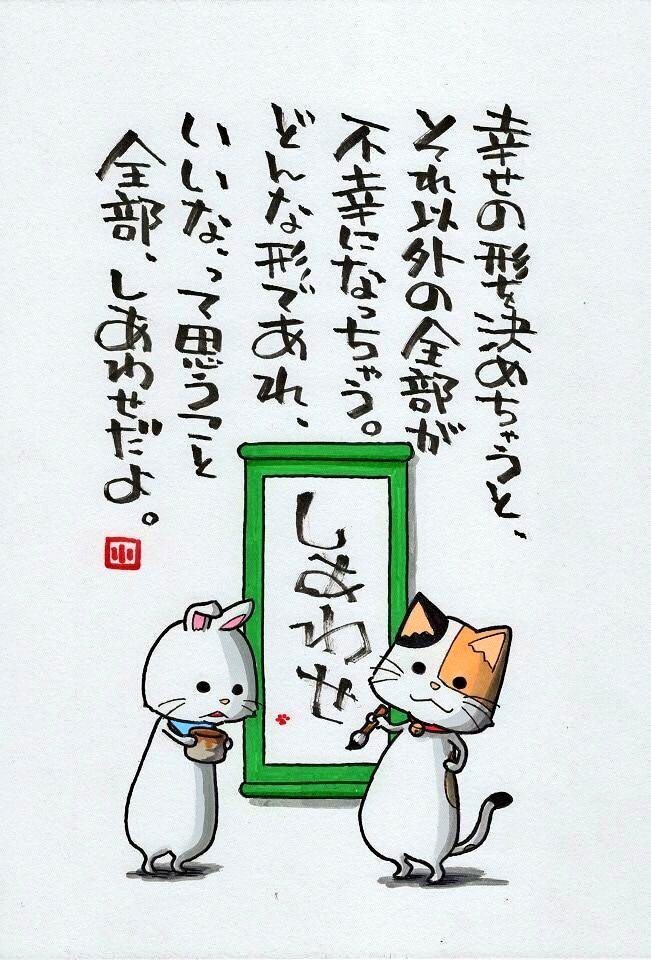 幸せの形を決めちゃうと、
それ以外の全部が
不幸になっちゃう。
どんな形であれ、
いいな、って思うこと
全部、しあわせだよ。
しあわせ
小